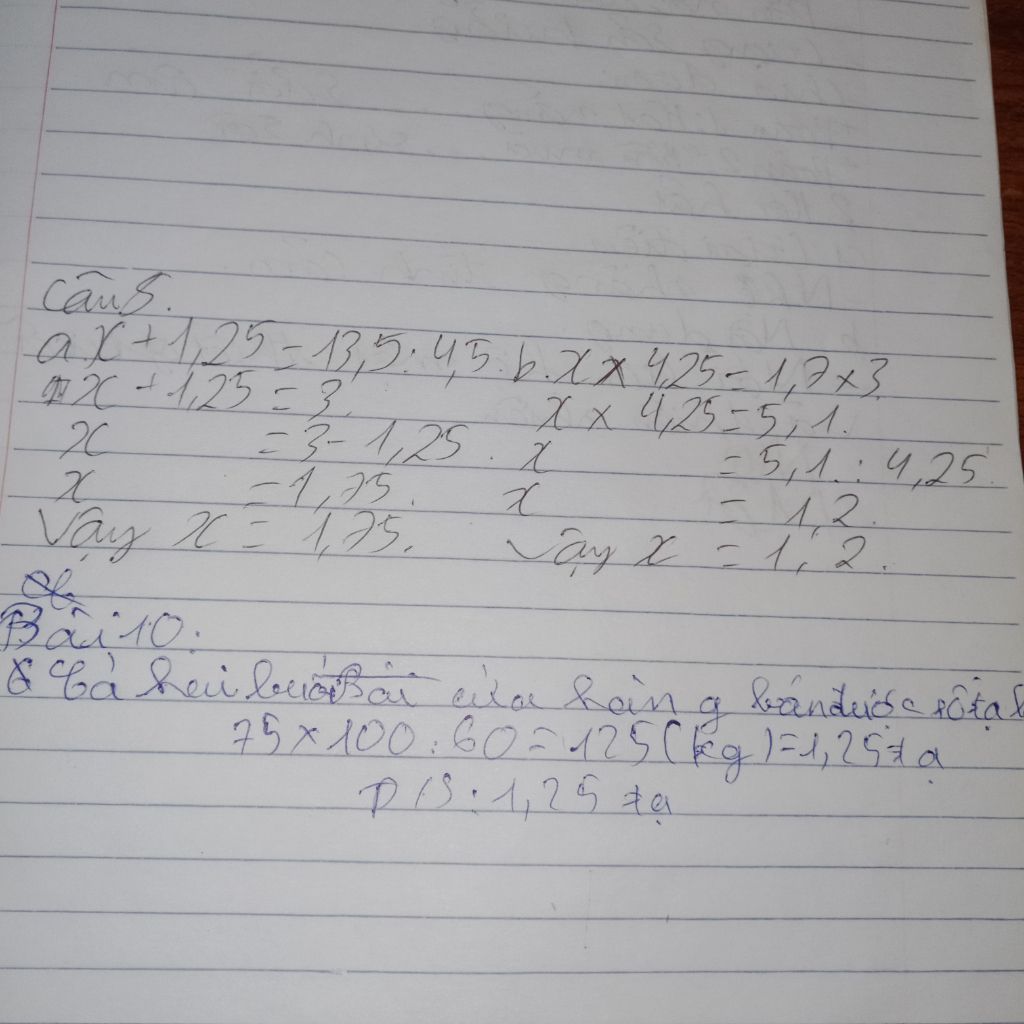 Câu 5.
a. x + 1,25 = 13,5 : 4,5. b. x x 4,25 = 1,7 x 3.
x + 1,25 = 3. x x 4,25 = 5,1.
x = 3 - 1,25. x = 5,1 : 4,25.
x = 1,75. x = 1,2.
Vậy x = 1,75. Vậy x = 1,2.
Bài 10:
Cả hai buổi cửa hàng bán được số tạ
75 x 100 : 60 = 125 (kg) = 1,25 tạ
Đ/S : 1,25 tạ